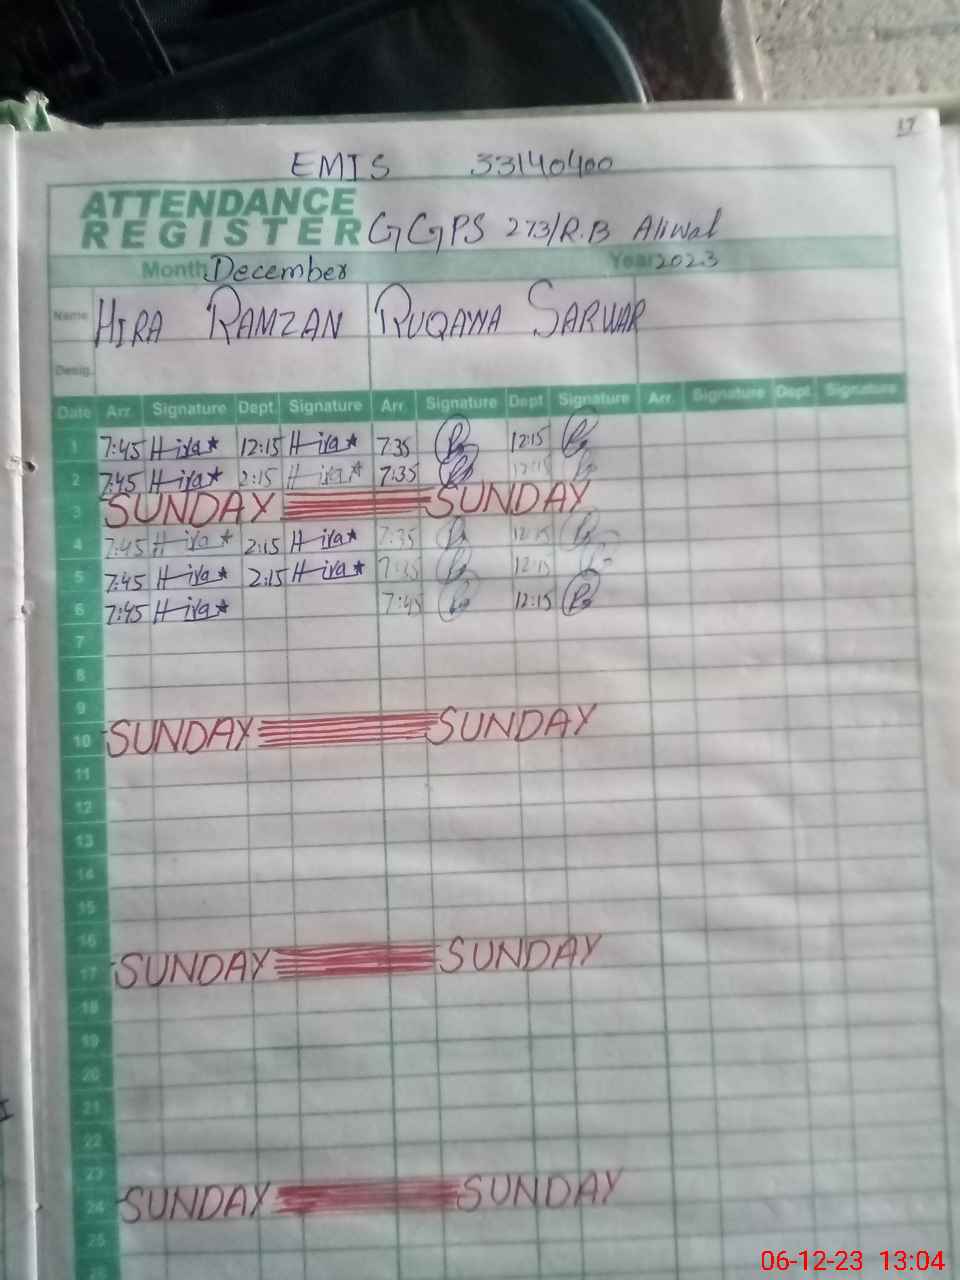 17
EMIS 33140400
ATTENDANCE
REGISTER GGPS 273/R.B Aliwal
Month December Year 2023
Name HIRA RAMZAN RUQAYYA SARWAR
Desig.
Date Arr. Signature Dept. Signature Arr. Signature Dept. Signature Arr. Signature Dept. Signature
1 7:45 Hira★ 12:15 Hira★ 7:35 12:15
2 7:45 Hira★ 2:15 Hira★ 7:35 12:15
3 SUNDAY SUNDAY
4 7:45 Hira★ 2:15 Hira★ 7:35 12:15
5 7:45 Hira★ 2:15 Hira★ 7:35 12:15
6 7:45 Hira★ 7:45 12:15
7
8
9
10 SUNDAY SUNDAY
11
12
13
14
15
16
17 SUNDAY SUNDAY
18
19
20
21
22
23
24 SUNDAY SUNDAY
25
06-12-23 13:04